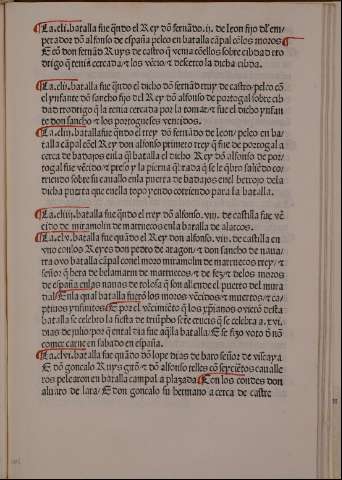 La.cli.batalla fue q̃ndo el Rey dõ fernãdo.ii. de leon fijo dl̃ em/
perador dõ alfonso de españa peleo en batalla cãpal cõlos moros
E cõ don fernãd Ruys de castro q̃ venia cõellos sobre cibdad ro
drigo q̃ tenia cercada/⁊ los vẽcio/⁊ descerco la dicha cibda.
La.clii.batalla fue q̃ndo el dicho dõ fernãd ruyz de castro peleo cõ
el ynfante dõ sancho fijo del Rey dõ alfonso de portogal sobre cib
dad rrodrigo q̃ la tenia cercada por la tomar/⁊ fue el dicho ynfan
te don sancho ⁊ los portogueses vencidos.
La.cliii.batalla fue q̃ndo el rrey dõ fernãdo de leon/ peleo en ba/
talla cãpal cõel Rey don alfonso primero rrey q̃ fue de portogal a
cerca de badajos enla q̃l batalla el dicho Rey dõ alfonso de por/
togal fue vẽcido ⁊ preso y la pierna q̃brada q̃ se le q̃bro saliẽdo co/
rriendo sobre su cauallo enla puerta de badajos enel berrojo dela
dicha puerta que enella topo yendo corriendo para la batalla.
La.cliiii.batalla fue q̃ndo el rrey dõ alfonso. viii. de castilla fue vẽ
cido de miramolin de marruecos enla batalla de alarcos.
La.clv.batalla fue q̃ndo el Rey don alfonso. viii. de castilla en
vno conlos Reyes don pedro de aragon/⁊ don sancho de nauar/
rra ovo batalla cãpal conel moro miramolin de marruecos rrey/⁊
señor q̃ hera de belamarin de marruecos/⁊ de fez/⁊ delos moros
de españa enlas nauas de tolosa q̃ son allende el puerto del mura
dal/ Enla qual batalla fuerõ los moros vẽcidos/⁊ muertos/⁊ ca/
ptiuos ynfinitos/ E por el vẽcimiẽto q̃ los xp̃ianos ovierõ desta
batalla se celebro la fiesta de triũpho sctẽ crucis q̃ se celebra a.xvi.
dias de julio/por q̃ ental dia fue aq̃lla batalla/ E se fizo voto d̃ nõ
comer carne en sabado en españa.
La.clvi.batalla fue quãdo dõ lope dias de baro señor de viscaya
E dõ gonçalo Ruys girõ/⁊ dõ alfonso telles cõ seysciẽtos caualle
ros pelearon en batalla campal a plazada/ Con los condes don
aluaro de lara/ E don gonçalo su hermano a cerca de castre